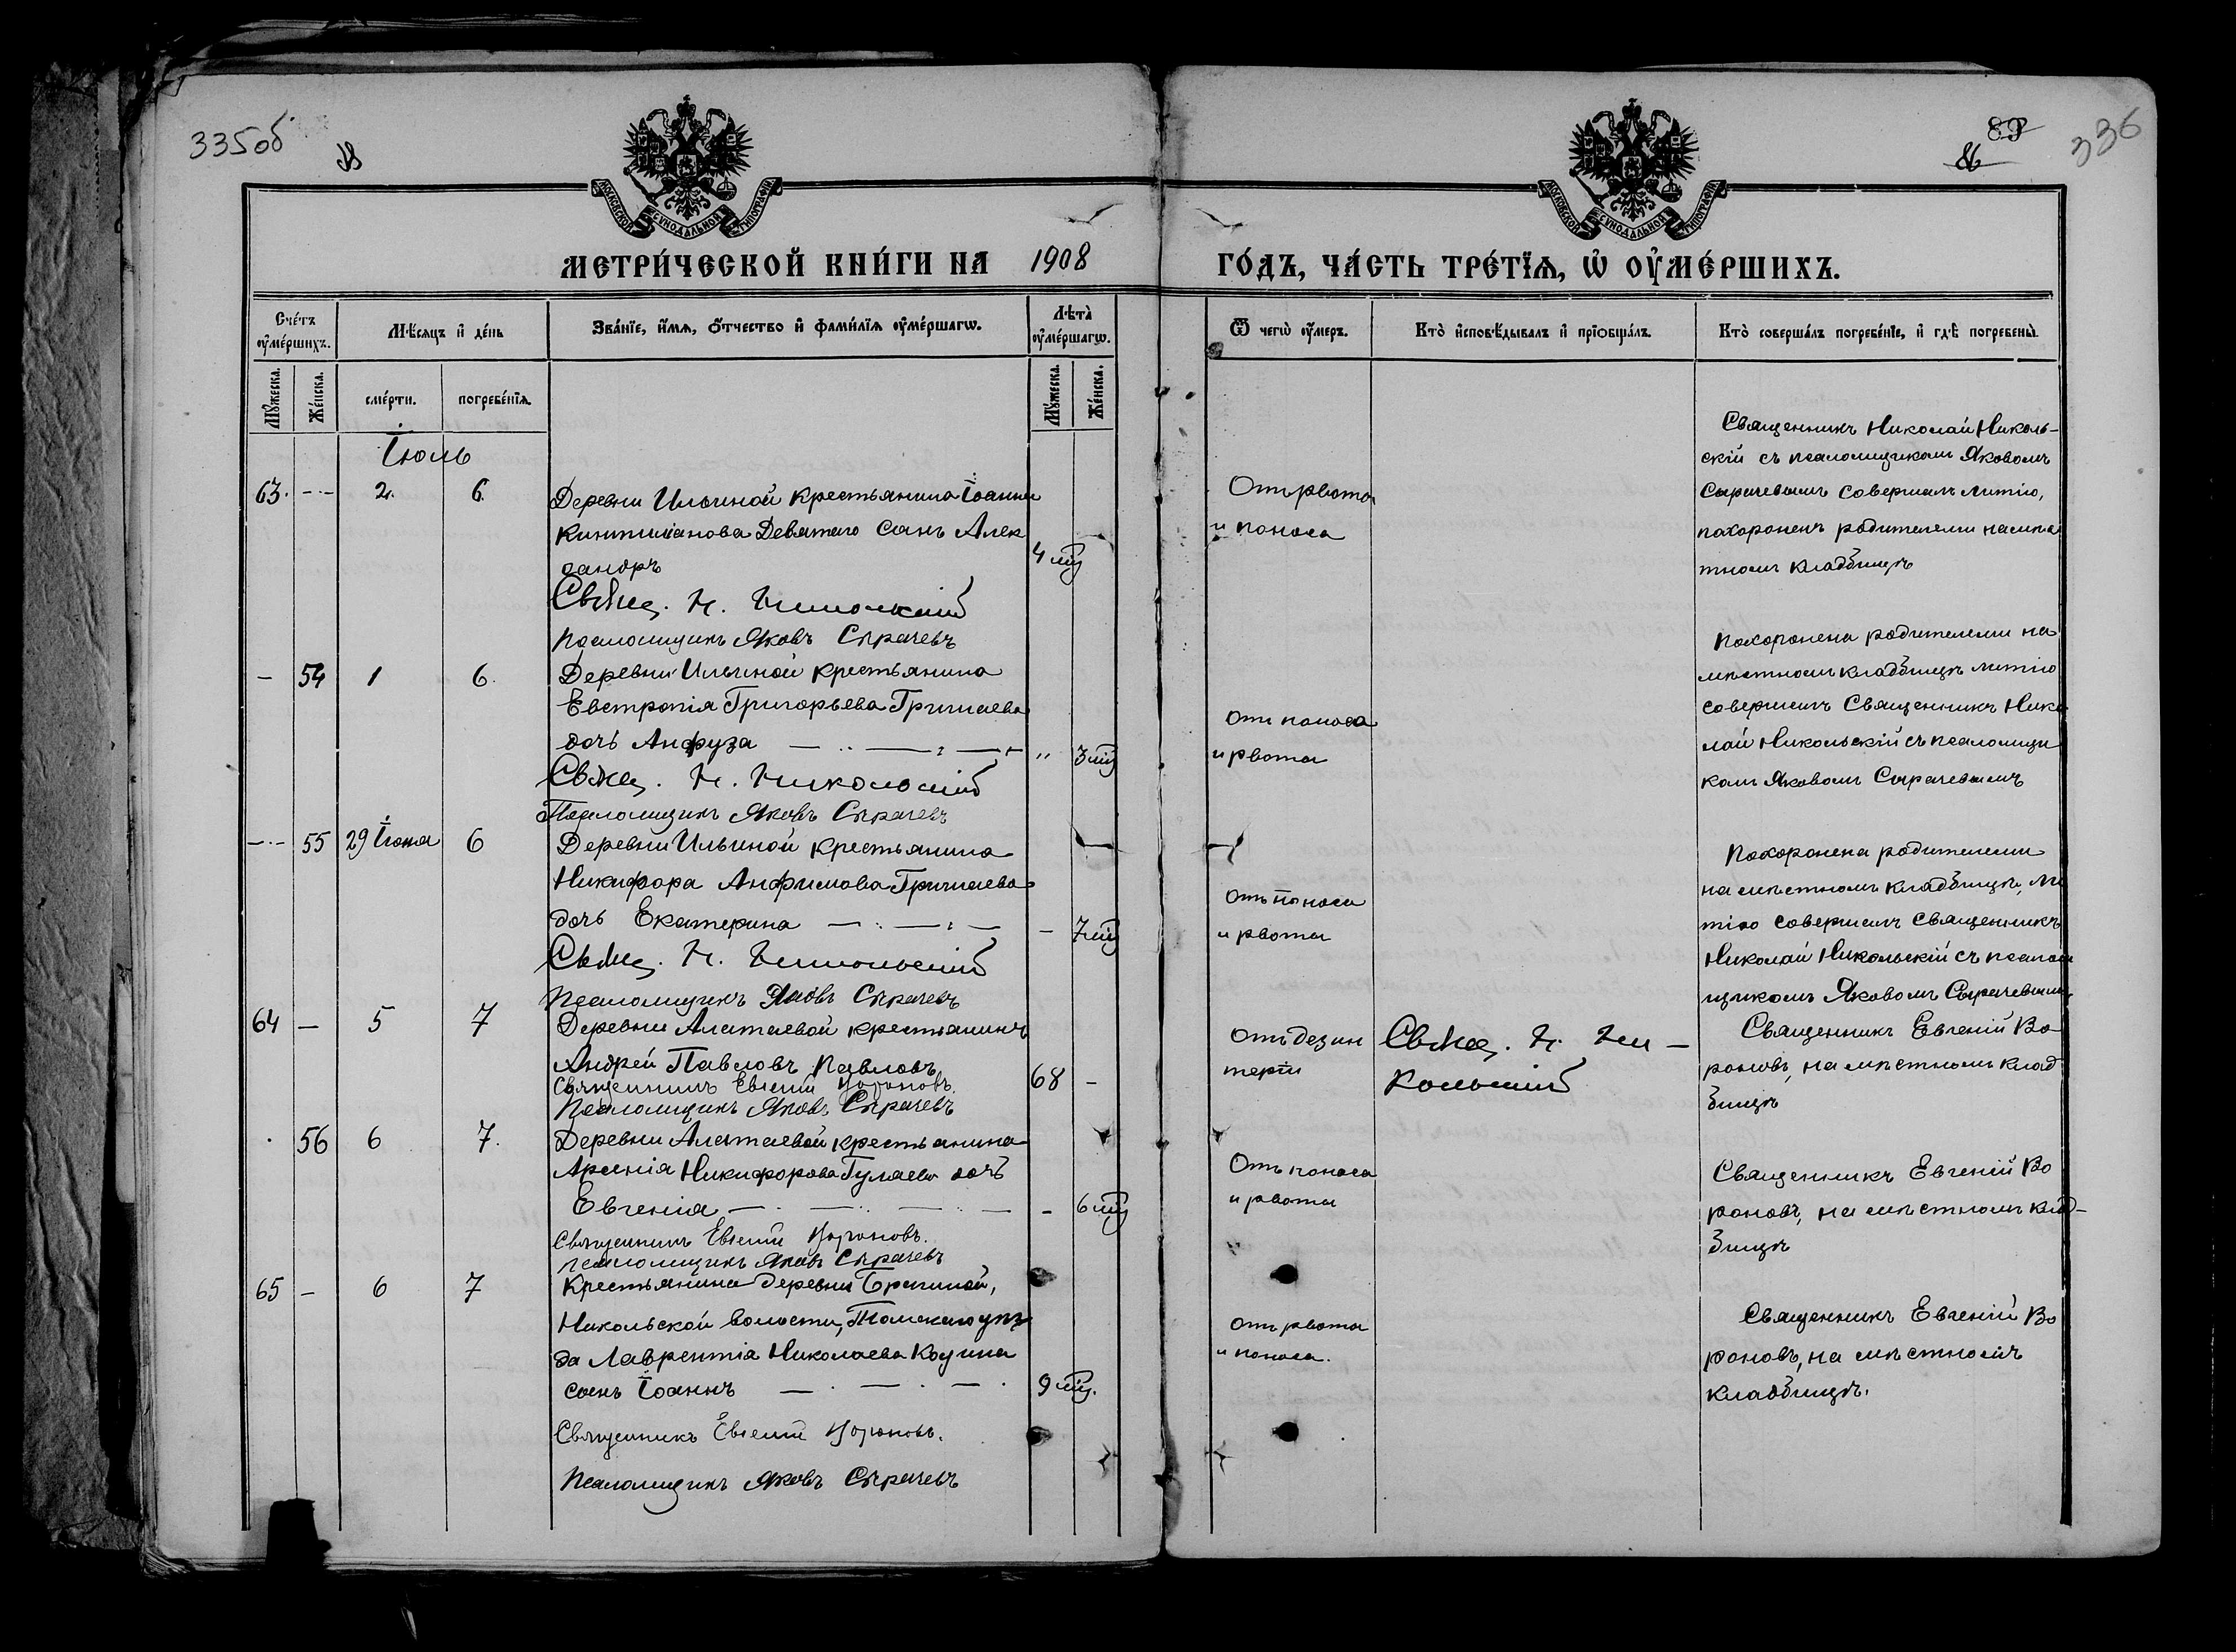 335об
336
МОСКОВСКОЙ СѴНОДАЛЬНОЙ ТИПОГРАФІИ
МОСКОВСКОЙ СѴНОДАЛЬНОЙ ТИПОГРАФІИ
МЕТРИ́ЧЕСКОЙ КНИ́ГИ НА 1908 ГО́ДЪ, ЧА́СТЬ ТРЕ́ТЇѦ, Ѡ ОУ҆МЕ́РШИХЪ.
Сче́тъ оу҆ме́ршихъ.
Мѣ́сяцъ и҆ де́нь
Зва́нїе, и҆́мѧ, ѻ҆́тчество и҆ фами́лїѧ оу҆ме́ршагѡ.
Лѣта̀ оу҆ме́ршагѡ.
Ѿ чегѡ̀ оу҆́меръ.
Кто̀ и҆сповѣ́дывалъ и҆ прїѻбща́лъ.
Кто̀ соверша́лъ погребе́нїе, и҆ гдѣ̀ погребены̀.
Му́жеска.
Же́нска.
сме́рти.
погребе́нїѧ.
Му́жеска.
Же́нска.
Іюль
63. — 2. 6.
Деревни Ильиной крестьянина Іоанна
Девятаго сынъ Алек
сандръ
4 мц
Свящ. Н. Никольскій
Псаломщикъ Яковъ Сырачевъ
Отъ рвоты
и поноса
Священникъ Николай Николь-
скій съ псаломщикомъ Яковомъ
Сырачевымъ совершалъ литію,
похороненъ родителями на мѣс
тномъ кладбищѣ
— 54 1 6.
Деревни Ильиной крестьянина
Евстропія Григорьева Гричаева
дочь Анфуза
" 3 мц
Свящ. Н. Никольскій
Псаломщикъ Яковъ Сырачевъ
Отъ поноса
и рвоты
Похоронена родителями на
мѣстномъ кладбищѣ литію
совершилъ Священникъ Нико
лай Никольскій съ псаломщи
комъ Яковомъ Сырачевымъ
— 55 29 Іюня 6
Деревни Ильиной крестьянина
Никифора Анфимова Гричаева
дочь Екатерина
— 7 мц
Свящ. Н. Никольскій
Псаломщикъ Яковъ Сырачевъ
Отъ поноса
и рвоты
Похоронена родителями
на мѣстномъ кладбищѣ, ли
тію совершилъ Священникъ
Николай Никольскій съ псалом
щикомъ Яковомъ Сырачевымъ
64 — 5 7
Деревни Алатаевой крестьянинъ
Андрей Павловъ Павловъ
68 —
Священникъ Евгеній Вороновъ.
Псаломщикъ Яковъ Сырачевъ
Отъ дезин
теріи
Свящ. Н. Ни —
кольскій
Священникъ Евгеній Во
роновъ, на мѣстномъ клад
бищѣ
56 6 7.
Деревни Алатаевой крестьянина
Арсенія Никифорова Гуляева дочь
Евгенія
— 6 мц
Священникъ Евгеній Вороновъ.
псаломщикъ Яковъ Сырачевъ
Отъ поноса
и рвоты
Священникъ Евгеній Во
роновъ, на мѣстномъ клад-
бищѣ
65 — 6 7
Крестьянина деревни
Никольской волости, Томскаго уѣз
да Лаврентія Николаева
сынъ Іоаннъ
9 мц.
Священникъ Евгеній Вороновъ.
Псаломщикъ Яковъ Сырачевъ
Отъ рвоты
и поноса.
Священникъ Евгеній Во
роновъ, на мѣстномъ
кладбищѣ.